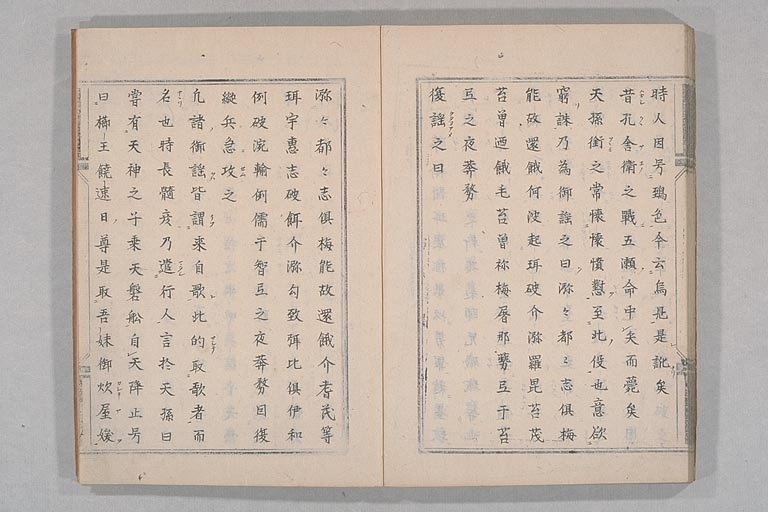 時人因号鵄邑今云鳥見是訛矣
昔孔舎衛之戦五瀬命中矢而薨矣
天孫銜之常懐憤懟至此役也意欲
窮誅乃為御謡之曰瀰々都々志倶梅
能故還餓何波起珥破介瀰羅毘苔茂
苔曽廼餓毛苔曽祢梅屠那藝弖于苔
弖之夜莽務
復謡之曰
瀰々都々志倶梅能故還餓介耆茂等
珥宇恵志破餌介瀰勾致弭比倶伊和
例破涴輸例儒于智弖之夜莽務因復
縦兵急攻之
凡諸御謡皆謂来目歌此的取歌者而
名也時長髄彦乃遣行人言於天孫曰
嘗有天神之子乗天磐船自天降止号
曰櫛玉饒速日尊是取吾妹御炊屋媛